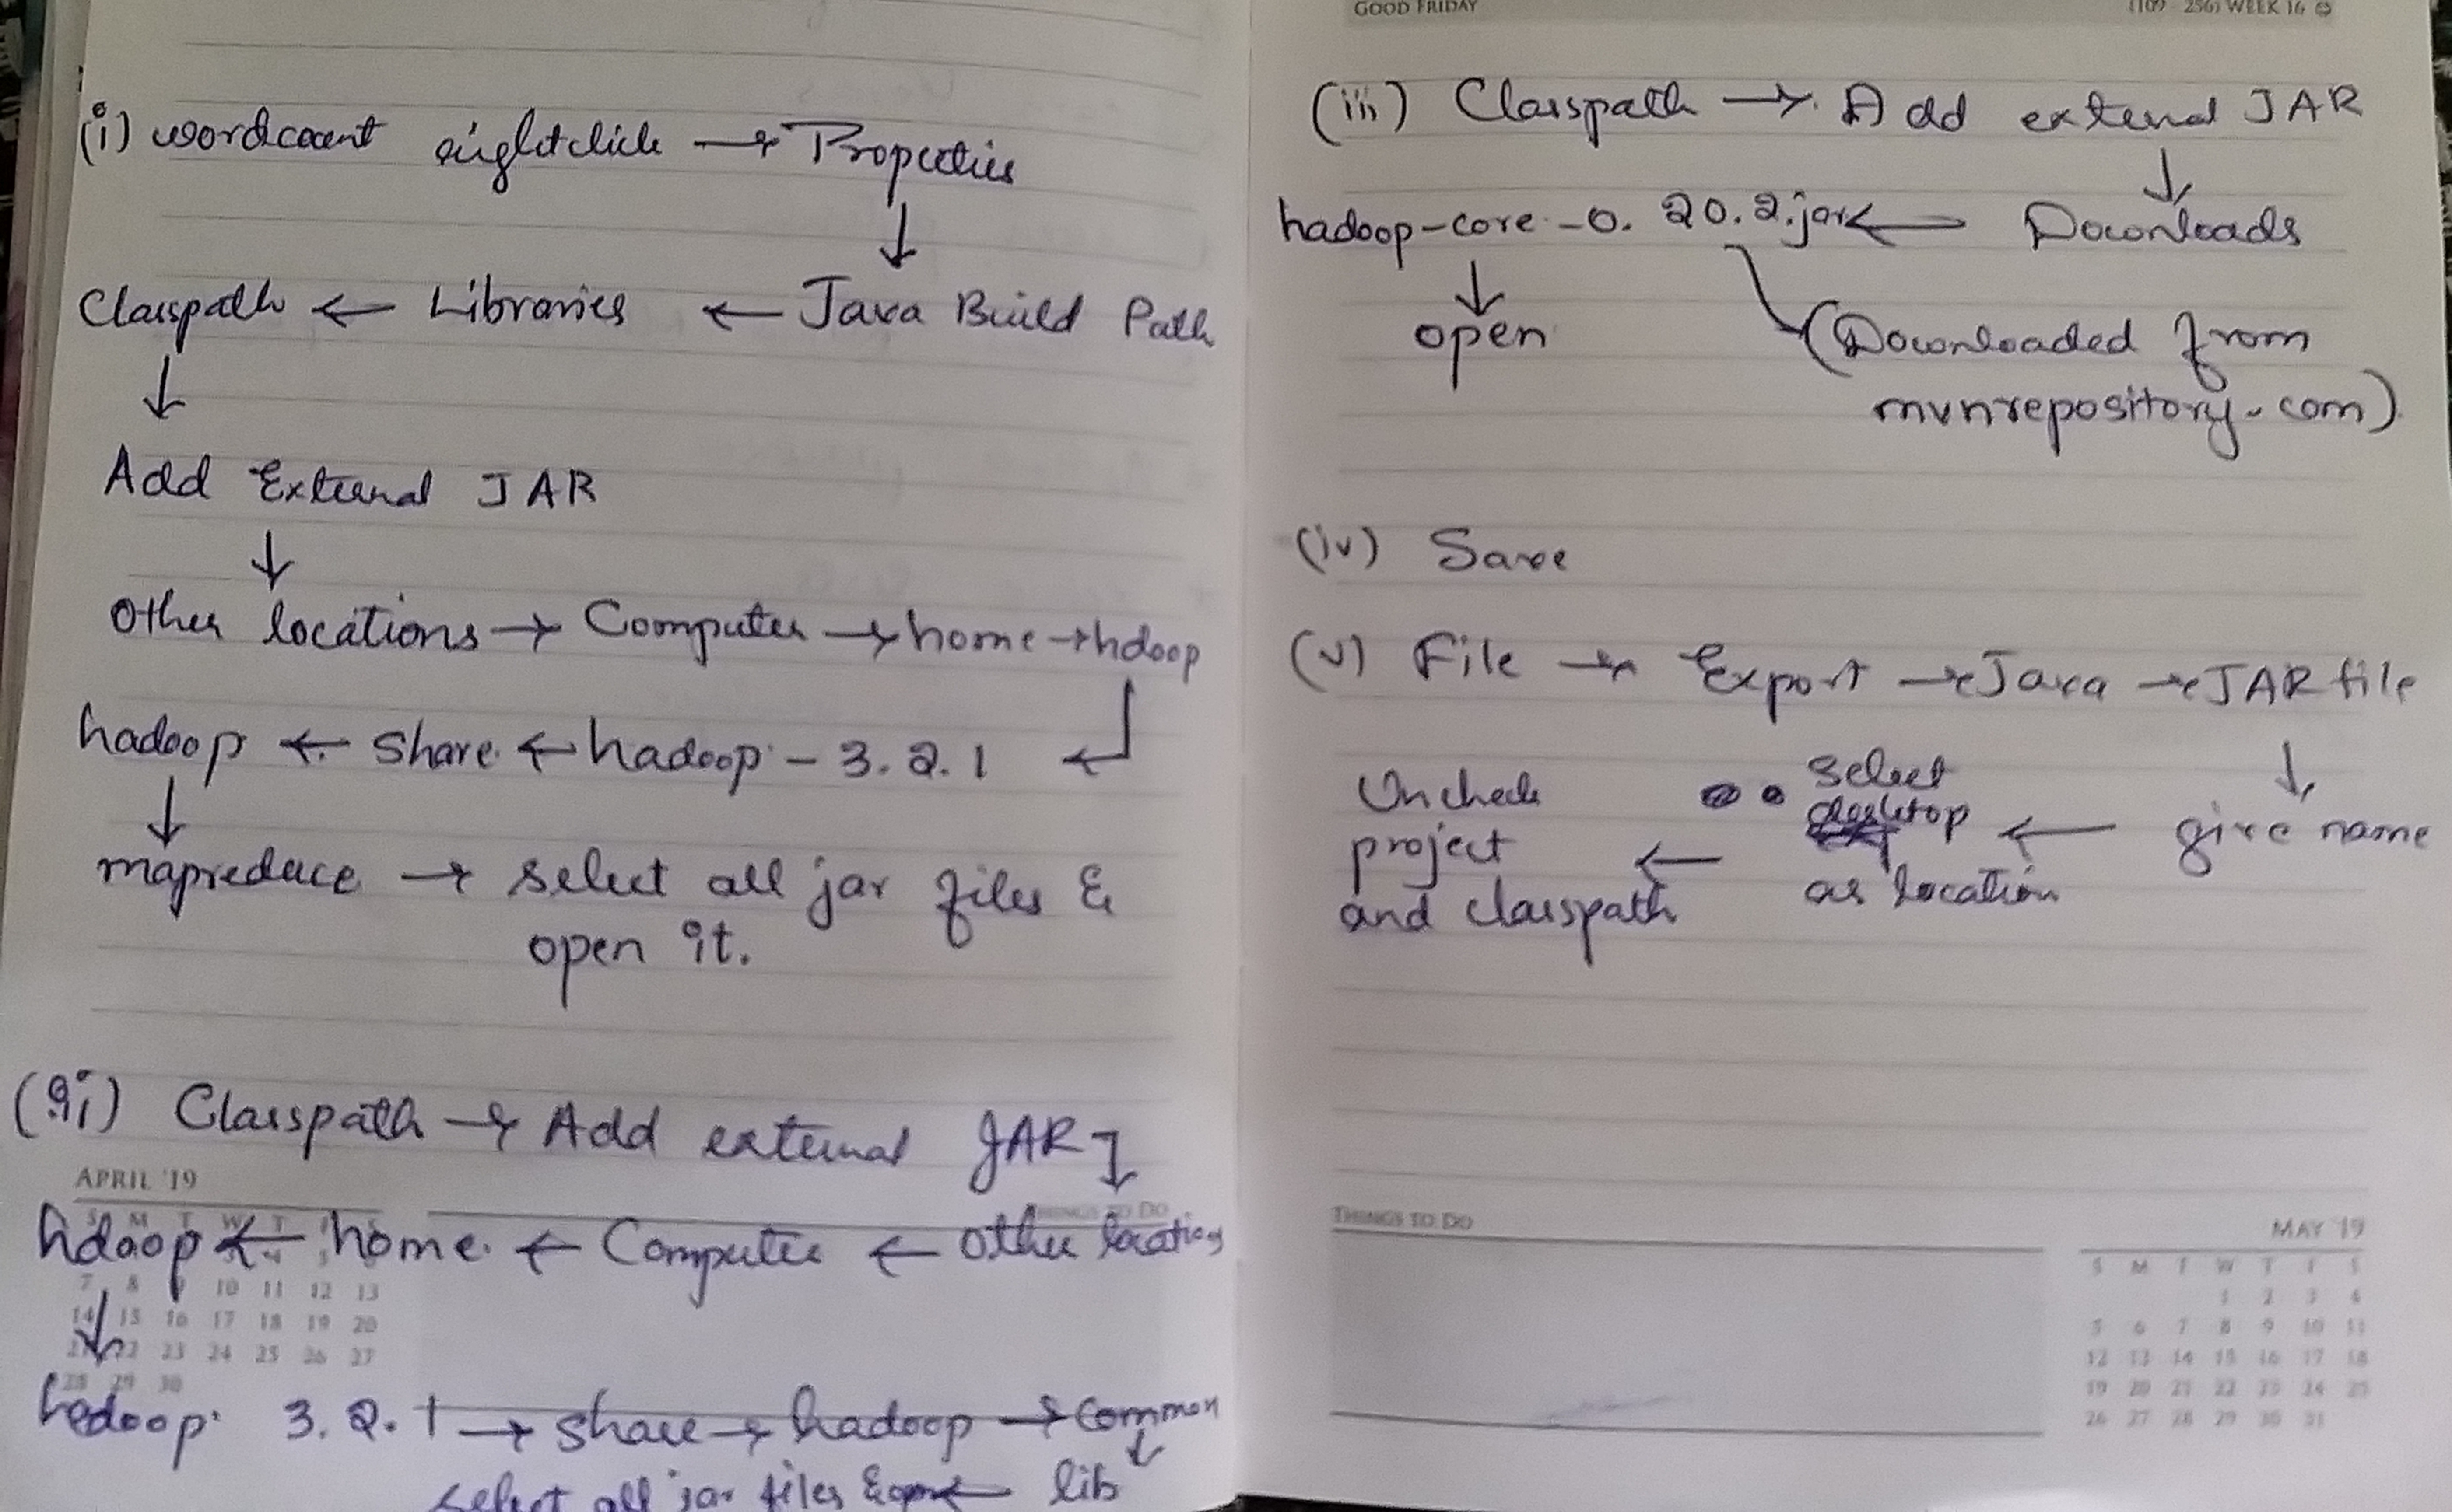 (i) wordcount rightclick → Properties
↓
Classpath ← Libraries ← Java Build Path
↓
Add External JAR
↓
Other locations → Computer → home → hdoop
hadoop ← share ← hadoop - 3.2.1 ↵
↓
mapreduce → select all jar files &
open it.
(ii) Classpath → Add external JAR ↓
APRIL '19
THINGS TO DO
hdoop ← home ← Computer ← other locations
S M T W T
7 8 9 10 11 12 13
14 15 16 17 18 19 20
21 22 23 24 25 26 27
28 29 30
↓
hadoop 3.2.1 → share → hadoop → common
↓
select all jar files & open ← lib
GOOD FRIDAY
(109 - 256) WEEK 16
(iii) Classpath → Add external JAR
↓
hadoop-core-0.20.2.jar ← Downloads
↓
open
(Downloaded from
mvnrepository.com)
(iv) Save
(v) File → Export → Java → JAR file
↓
Uncheck
project
and classpath
←
select
desktop
as location
← give name
THINGS TO DO
MAY '19
S M T W T F S
1 2 3 4
5 6 7 8 9 10 11
12 13 14 15 16 17 18
19 20 21 22 23 24 25
26 27 28 29 30 31